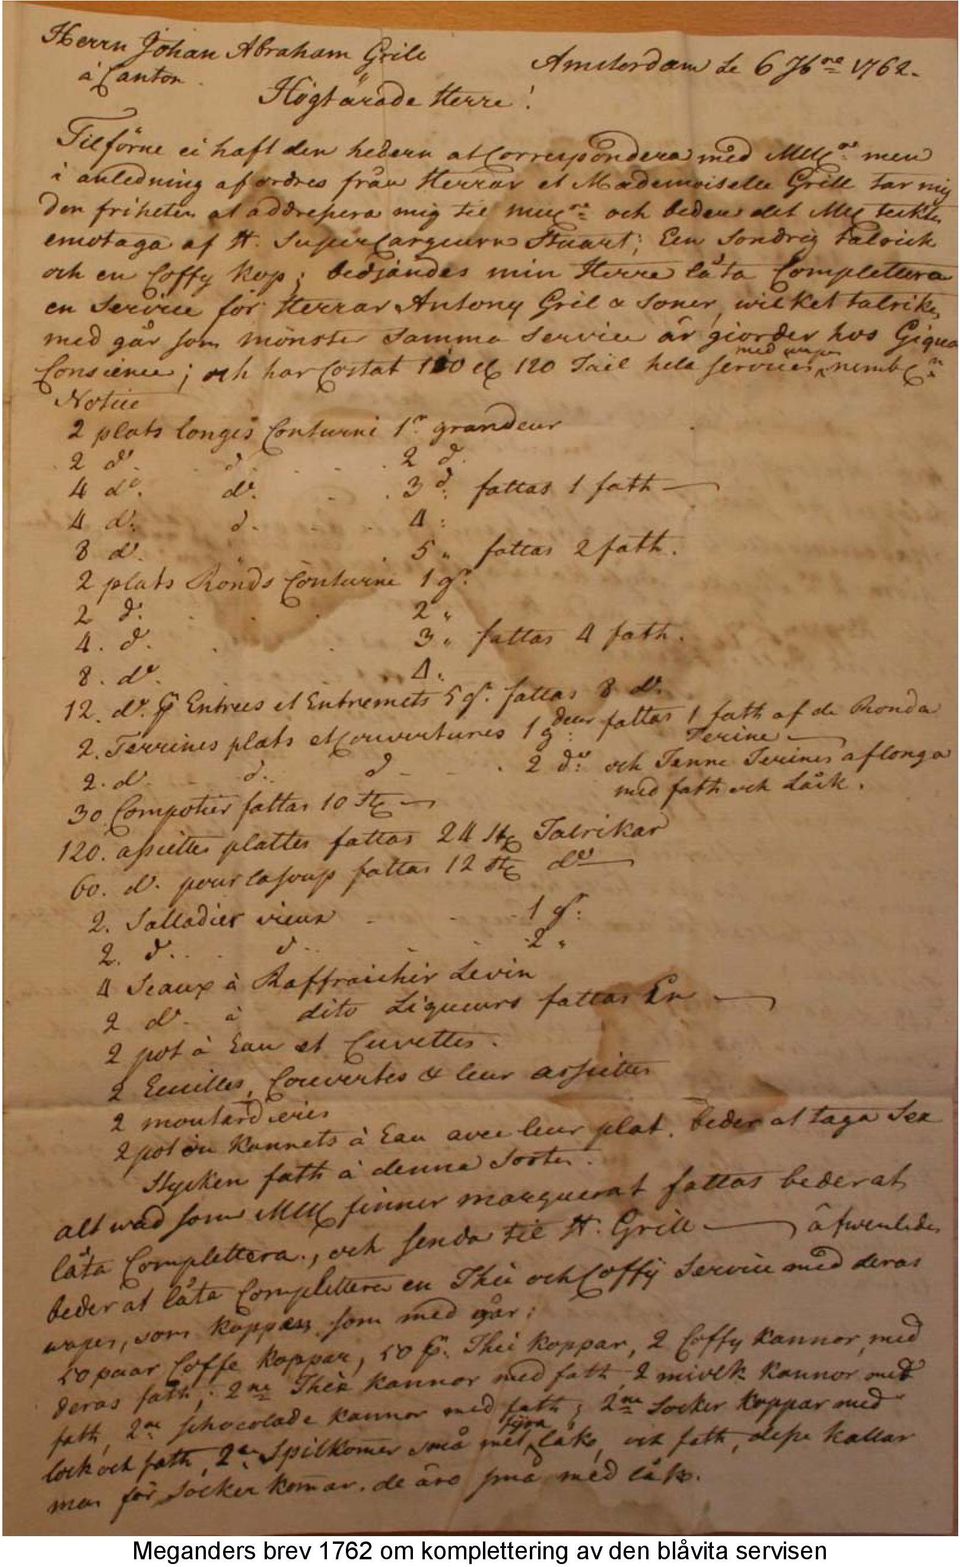 Herrn Johan Abraham Grill
à Canton.
Amsterdam de 6 1762.
Högtärade Herre!
Tilförne ei haft den hedern at Correspondera med men
i anledning af ordres från Herrar et Mademoiselle Grill tar mig
den friheten at addressera mig til och beder det
emotaga af H. SuperCargeurn Stuart; Een Sondrig Talrick
och en Coffy Kop; bedjandes min Herre låta Complettera
en Service för Herrar Antony Gril & Soner, wilket talrik,
med går som mönster Samma Service är giorder hos
och har Costat 120 Tail hela Servicen med wapen
Notice
2 plats longes Conturné 1r grandeur
2 do. d. 2 d.
4 do. do. 3 d. fattas 1 fath
4 d. d. 4:
8 d. " 5 " fattas 2 fath.
2 plats Ronds Conturne 1 gr
2 d. 2 "
4. d. 3 " fattas 4 fath.
8. do. 4.
12. do. Entrees et Entremets 5 gr. fattas 8 do.
2. Terrines plats et Couvertures 1 g: deur fattas 1 fath af de Ronda
Terine
2. d. d. d 2 do: och Tenne Terines aflonga
med fath och Låck.
30 Compotier fattas 10 St
120. assiettes plattes fattas 24 St Talrikar
60. d. pour la soup fattas 12 St do
2. Salladier vieux 1 gr:
2. d. d. 2 "
4 Seaux à Raffraichir Levin
2 do. à dito Liqueurs fattas En
2 pot à Eau et Cuvettes.
2 Couvertes & leur assiettes
2 moutardieries
2 pot ou Kannets à Eau avec leur plat. beder at taga Sex
Stycken fath à denna Sorten.
alt wad som finner marquerat fattas beder at
låta Complettera, och senda til H. Grill åfwenledes
beder at låta Complettera en Thée och Coffy Service med deras
wapen, som Koppar som med går:
50 paar Coffe Koppar, 50 p. Thee Koppar, 2 Coffy Kannor, med
deras fath; 2ne Thee Kannor med fath 2 miölk Kannor med
fath, 2ne Schocolade Kannor med fath; 2ne Socker Koppar med
lock och fath, 2ne Spilkomer små med låk, och fath, desse kallar
man för Socker komar. de äro små med låk.
Meganders brev 1762 om komplettering av den blåvita servisen